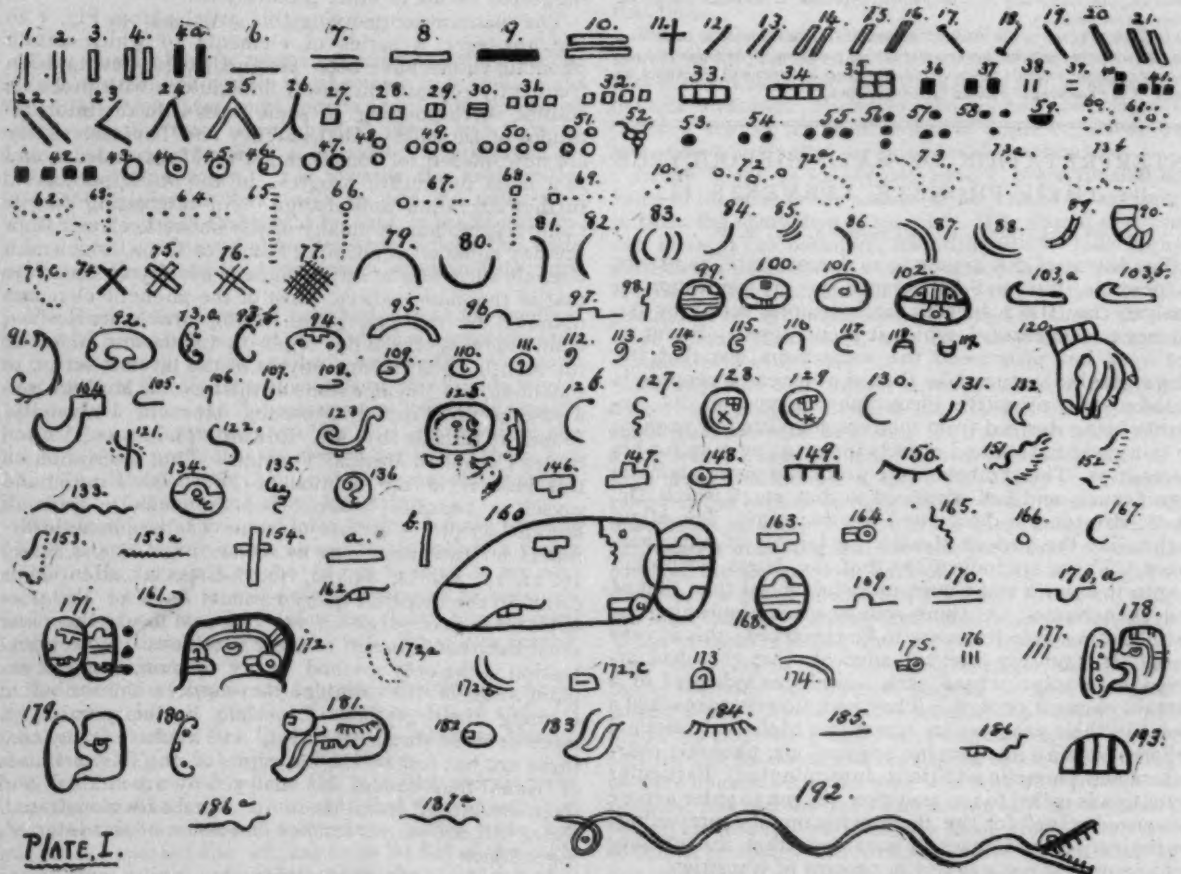 1. 2. 3. 4. 4a. 6. 7. 8. 9. 10. 11. 12. 13. 14. 15. 16. 17. 18. 19. 20. 21.
22. 23. 24. 25. 26. 27. 28. 29. 30. 31. 32. 33. 34. 35. 36. 37. 38. 39. 40. 41.
42. 43. 44. 45. 46. 47. 48. 49. 50. 51. 52. 53. 54. 55. 56. 57. 58. 59. 60. 61.
62. 63. 64. 65. 66. 67. 68. 69. 72. 73a 73b
73,c. 74. 75. 76. 77. 79. 80. 81. 82. 83. 84. 85. 86. 87. 88. 89. 90.
91. 92. 93,a 93,b. 94. 95. 96. 97. 98. 99. 100. 101. 102. 103.a 103.b.
104. 105. 106. 107. 108. 109. 110. 111. 112. 113. 114. 115. 116. 117. 118. 119. 120.
121. 122. 123. 125. 126. 127. 128. 129. 130. 131. 132.
133. 134. 135. 136. 146. 147. 148. 149. 150. 151. 152.
153. 153a 154. a. b. 160. 163. 164. 165. 166. 167.
161. 162. 168. 169. 170. 170,a
171. 172. 172,a 172,b 172,c 173 174. 175. 176 177. 178.
179. 180. 181. 182. 183. 184. 185. 186. 193.
186a 187a 192
PLATE, I.